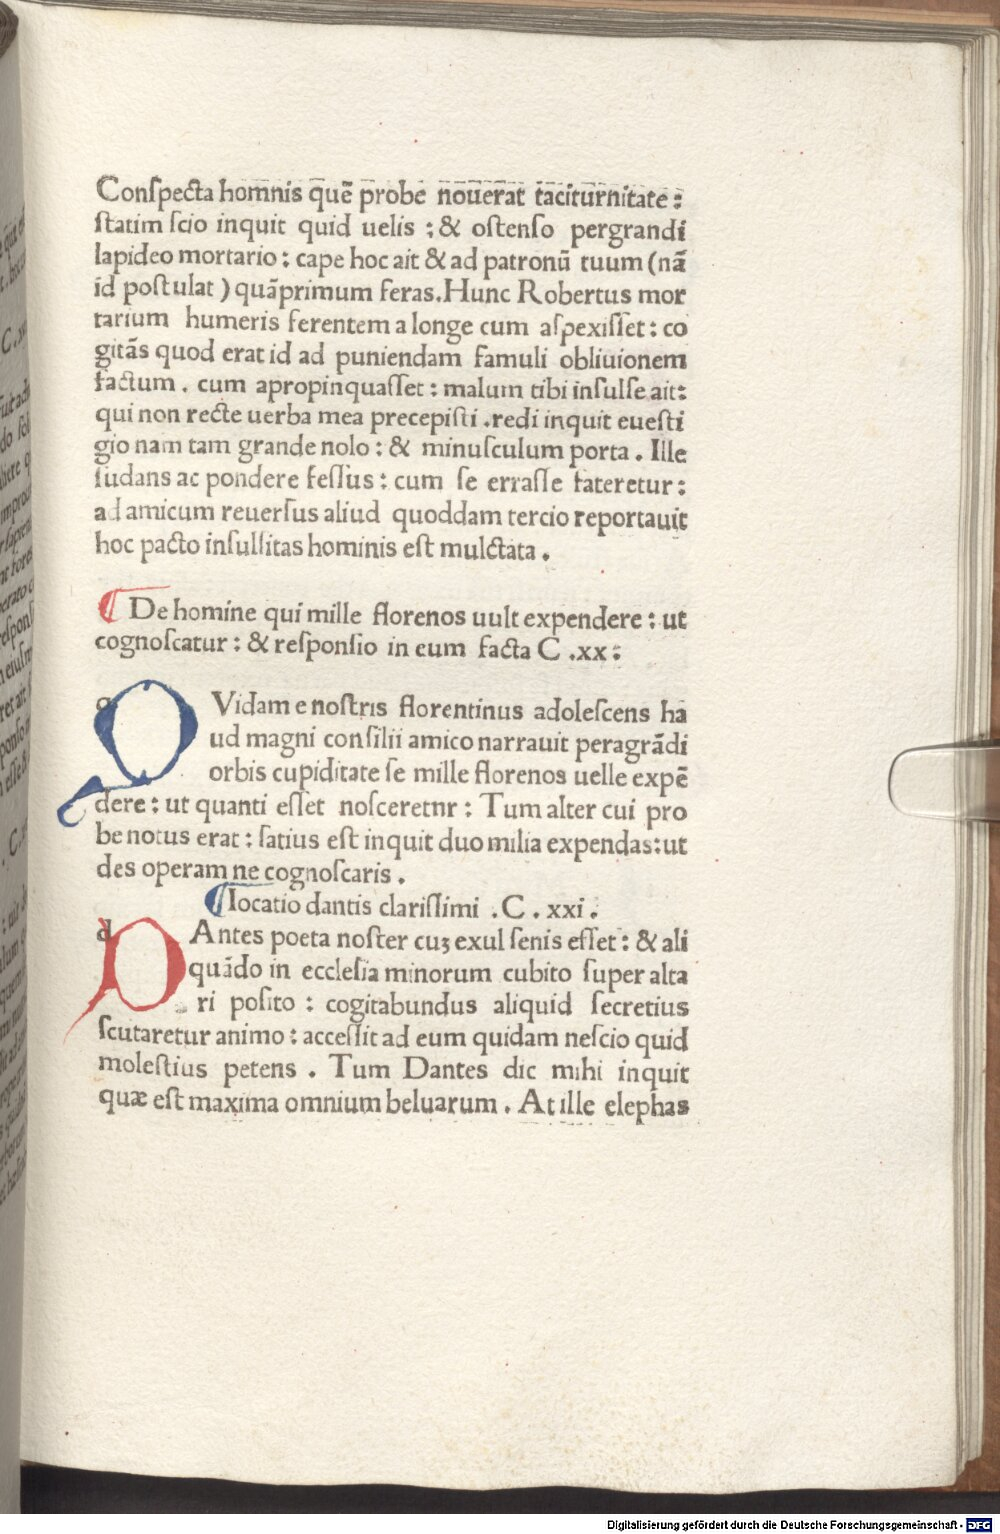 Conſpecta homnis quē probe nouerat taciturnitate :
ſtatim ſcio inquit quid uelis : & oſtenſo pergrandi
lapideo mortario : cape hoc ait & ad patronū tuum (nā
id poſtulat ) quāprimum feras.Hunc Robertus mor
tarium humeris ferentem a longe cum aſpexiſſet : co
gitās quod erat id ad puniendam famuli obliuionem
factum . cum apropinquaſſet : malum tibi inſulſe ait:
qui non recte uerba mea precepiſti .redi inquit eueſti
gio nam tam grande nolo : & minuſculum porta . Ille
ſudans ac pondere feſſus : cum ſe erraſſe fateretur :
ad amicum reuerſus aliud quoddam tercio reportauit
hoc pacto inſulſitas hominis eſt mulctata .
¶ De homine qui mille florenos uult expendere : ut
cognoſcatur : & reſponſio in eum facta C .xx :
QVidam e noſtris florentinus adoleſcens ha
ud magni conſilii amico narrauit peragrādi
orbis cupiditate ſe mille florenos uelle expē
dere : ut quanti eſſet noſceretnr : Tum alter cui pro
be notus erat : ſatius eſt inquit duo milia expendas:ut
des operam ne cognoſcaris .
¶ Iocatio dantis clariſſimi .C . xxi .
DAntes poeta noſter cuʒ exul ſenis eſſet : & ali
quādo in eccleſia minorum cubito ſuper alta
ri poſito : cogitabundus aliquid ſecretius
ſcutaretur animo : acceſſit ad eum quidam neſcio quid
moleſtius petens . Tum Dantes dic mihi inquit
quæ eſt maxima omnium beluarum . At ille elephas
Digitalisierung gefördert durch die Deutsche Forschungsgemeinschaft - DFG